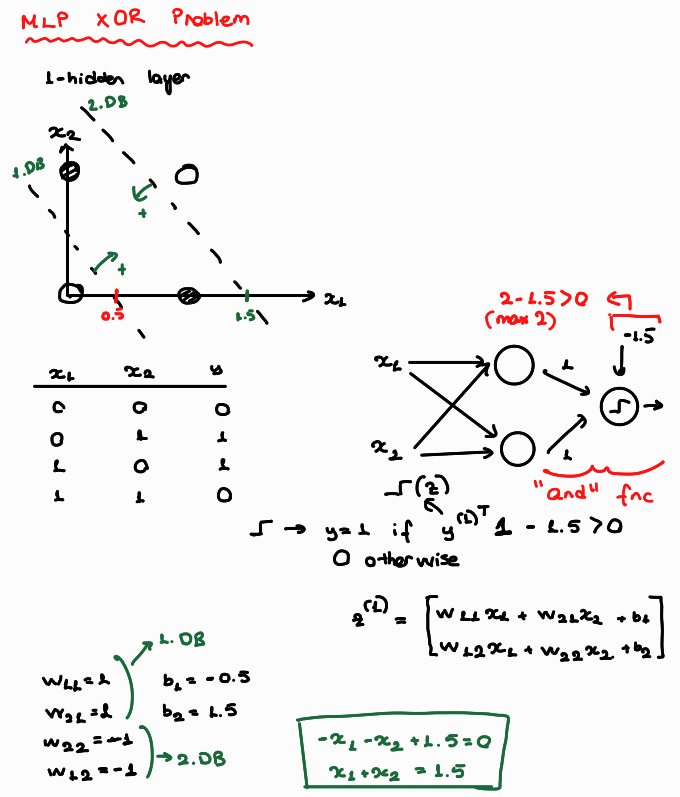 MLP XOR Problem
1-hidden layer
2.DB
x₂
1.DB
+
+
x₁
0.5
1.5
x₁ x₂ y
0 0 0
0 1 1
1 0 1
1 1 0
2-1.5>0
(max 2)
-1.5
x₁
1
x₂
1
"and" fnc
(z)
→ y=1 if y⁽¹⁾ᵀ 1 - 1.5 >0
0 otherwise
z⁽¹⁾ = [w₁₁x₁ + w₂₁x₂ + b₁
w₁₂x₁ + w₂₂x₂ + b₂]
1.DB
w₁₁=1 b₁ = -0.5
w₂₁=1 b₂ = 1.5
w₂₂=-1
→2.DB
w₁₂=-1
-x₁-x₂+1.5=0
x₁+x₂ = 1.5